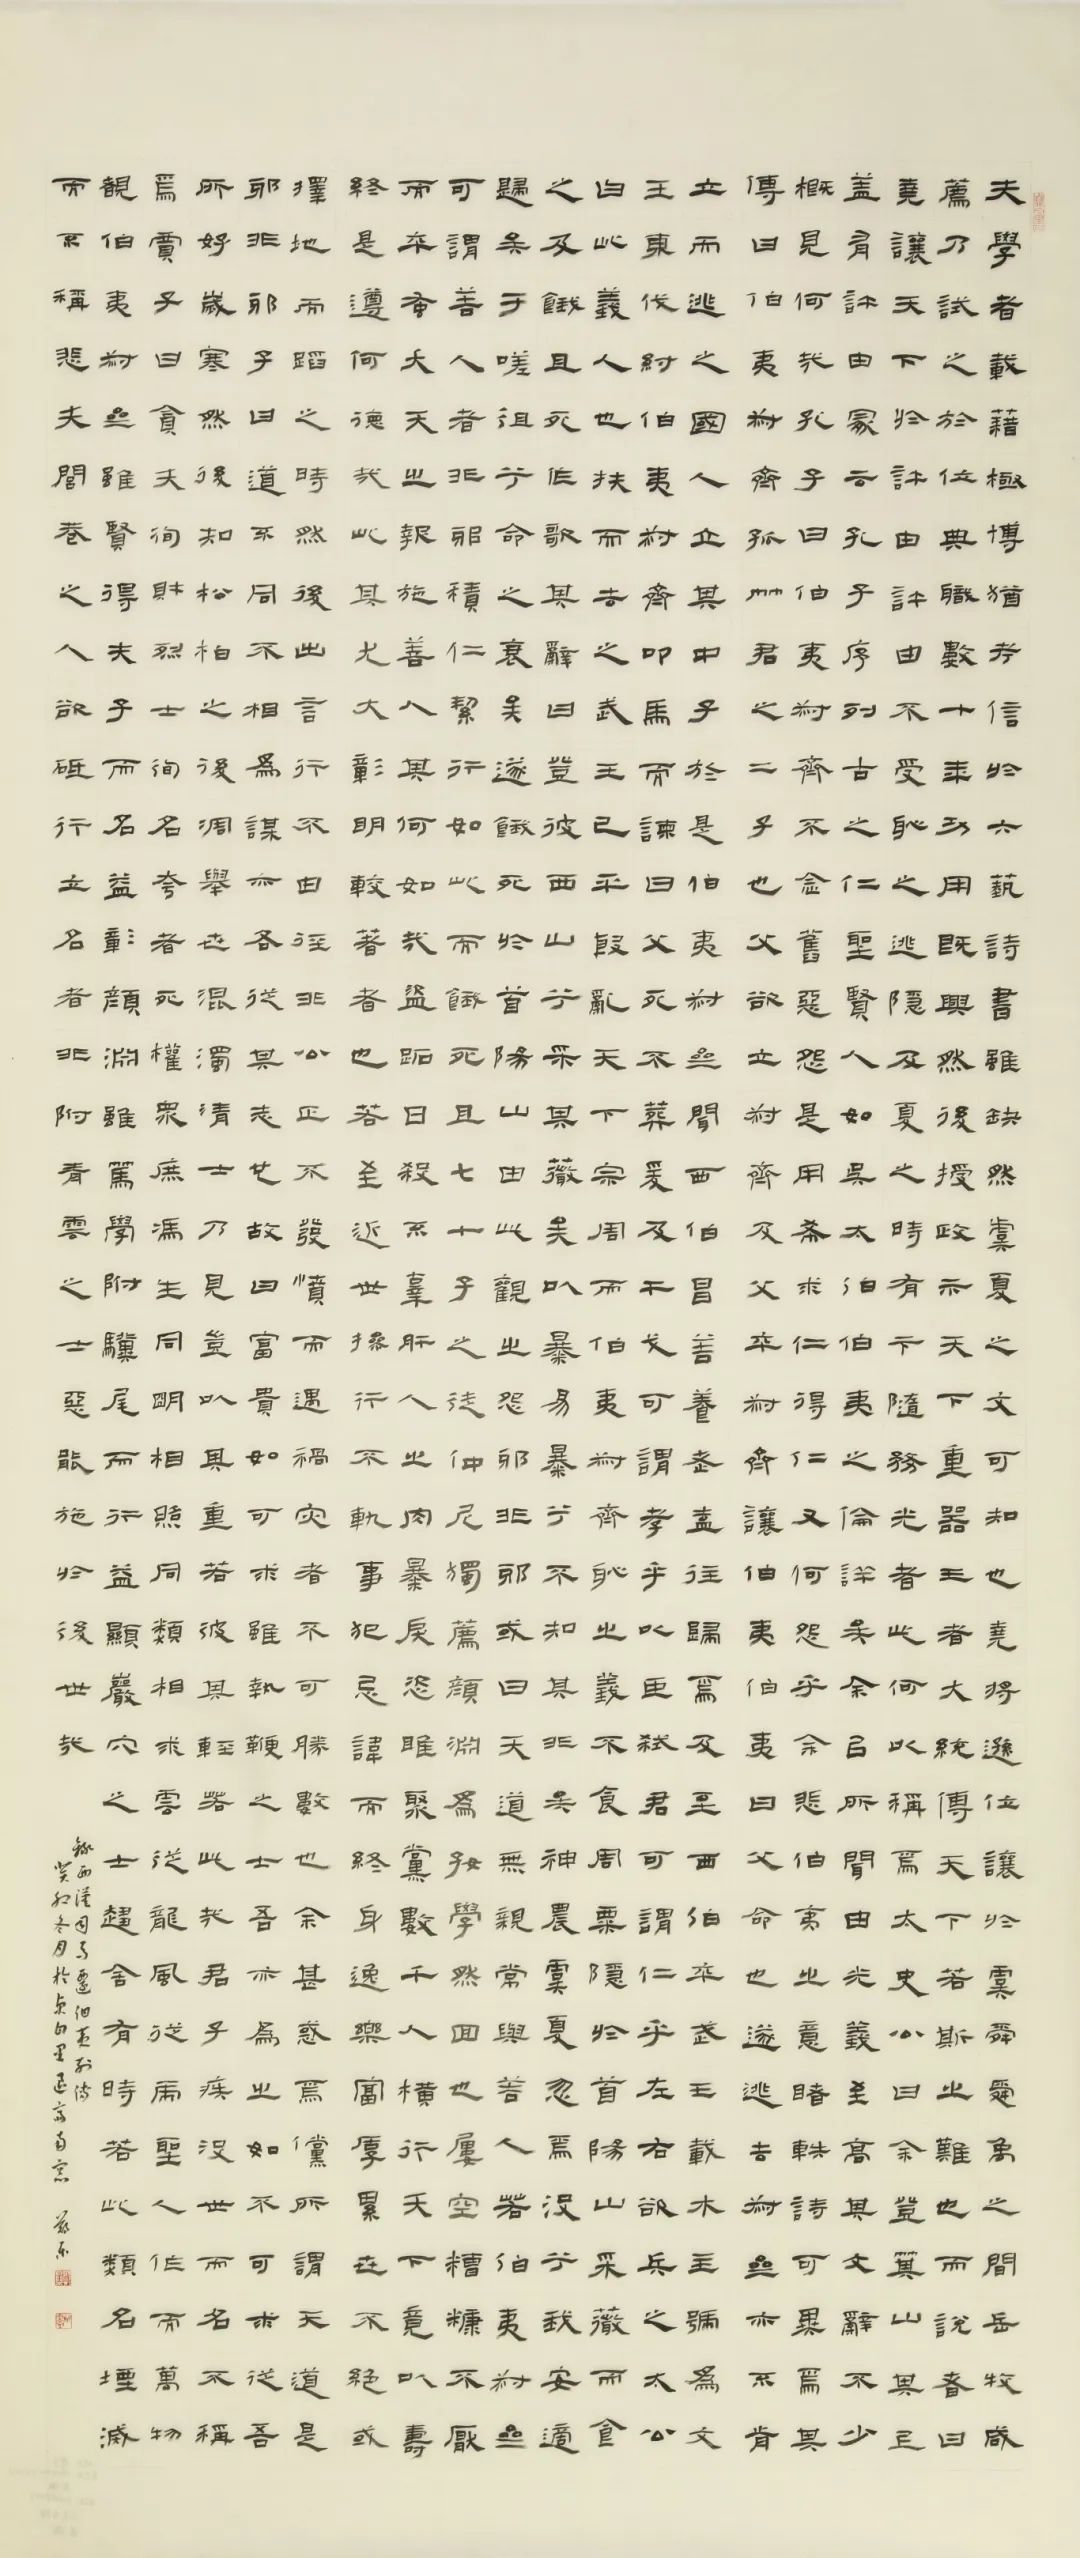 夫學者載藉極博猶考信於六藝詩書雖缺然虞夏之文可知也堯將遜位讓於虞舜舜禹之間岳牧咸
薦乃試之於位典職數十年功用既興然後授政示天下重器王者大統傳天下若斯之難也而說者曰
堯讓天下於許由許由不受恥之逃隱及夏之時有卞隨務光者此何以稱焉太史公曰余登箕山其上
蓋有許由冢云孔子序列古之仁聖賢人如吳太伯伯夷之倫詳矣余以所聞由光義至高其文辭不少
概見何哉孔子曰伯夷叔齊不念舊惡怨是用希求仁得仁又何怨乎余悲伯夷之意睹軼詩可異焉其
傳曰伯夷叔齊孤竹君之二子也父欲立叔齊及父卒叔齊讓伯夷伯夷曰父命也遂逃去叔齊亦不肯
立而逃之國人立其中子於是伯夷叔齊聞西伯昌善養老盍往歸焉及至西伯卒武王載木主號為文
王東伐紂伯夷叔齊叩馬而諫曰父死不葬爰及干戈可謂孝乎以臣弒君可謂仁乎左右欲兵之太公
曰此義人也扶而去之武王已平殷亂天下宗周而伯夷叔齊恥之義不食周粟隱於首陽山采薇而食
之及餓且死作歌其辭曰登彼西山兮采其薇矣以暴易暴兮不知其非矣神農虞夏忽焉沒兮我安適
歸矣于嗟徂兮命之衰矣遂餓死於首陽山由此觀之怨邪非邪或曰天道無親常與善人若伯夷叔齊
可謂善人者非邪積仁絜行如此而餓死且七十子之徒仲尼獨薦顏淵為好學然回也屢空糟糠不厭
而卒蚤夭天之報施善人其何如哉盜跖日殺不辜肝人之肉暴戾恣睢聚黨數千人橫行天下竟以壽
終是遵何德哉此其尤大彰明較著者也若至近世操行不軌事犯忌諱而終身逸樂富厚累世不絕或
擇地而蹈之時然後出言行不由徑非公正不發憤而遇禍災者不可勝數也余甚惑焉儻所謂天道是
邪非邪子曰道不同不相為謀亦各從其志也故曰富貴如可求雖執鞭之士吾亦為之如不可求從吾
所好歲寒然後知松柏之後凋舉世混濁清士乃見豈以其重若彼其輕若此哉君子疾沒世而名不稱
焉賈子曰貪夫徇財烈士徇名夸者死權眾庶馮生同明相照同類相求雲從龍風從虎聖人作而萬物
覩伯夷叔齊雖賢得夫子而名益彰顏淵雖篤學附驥尾而行益顯巖穴之士趨舍有時若此類名堙滅
而不稱悲夫閭巷之人欲砥行立名者非附青雲之士惡能施於後世哉
錄西漢司馬遷伯夷列傳
癸卯冬月於貞白里退齋南窗